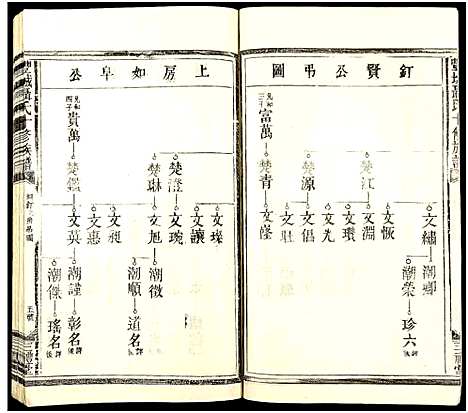 釘賢公弔圖
文繡
潮卿
潮榮
珍六
文恢
楚江
文淵
文瓚
楚源
文先
文侶
文壯
富萬
楚青
文隆
上房如阜公
文璨
文讓
楚澄
文琬
楚琳
文旭
潮徵
道名
潮順
文昶
文惠
貴萬
文英
潮謹
彰名
潮傑
瑤名
三禮堂